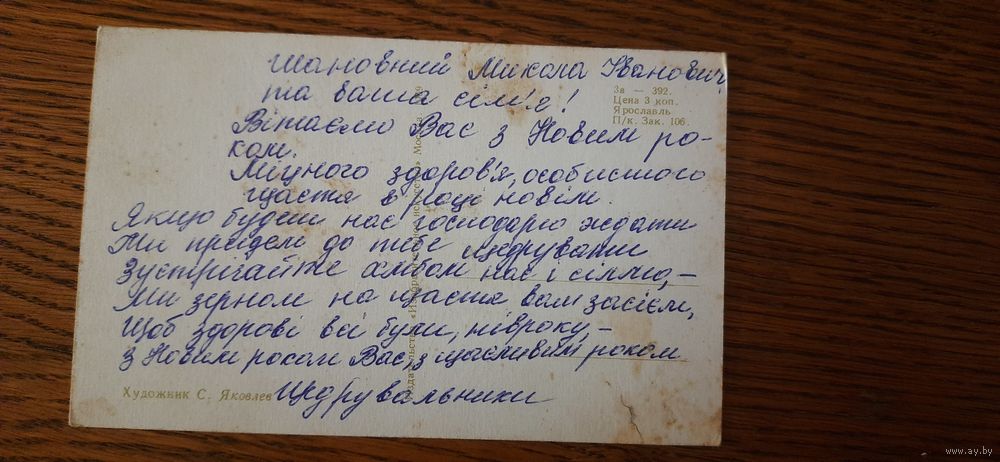 Шановний Микола Іванович
та ваша сім'я!
За — 392.
Цена 3 коп.
Ярославль
П/к. Зак. 106.
Вітаємо Вас з Новим ро-
ком.
Міцного здоров'я, особистого
щастя в році новім.
Якщо будеш нас господарю ждати
Ми прийдем до тебе щедрувати
Зустрічайте хлібом нас і сіллю,—
Ми зерном на щастя вам засієм,
Щоб здорові всі були, нівроку,—
з Новим роком Вас, з щасливим роком
Щедрувальники
Художник С. Яковлев
Издательство «Изобразительное искусство» Москва
www.ay.by